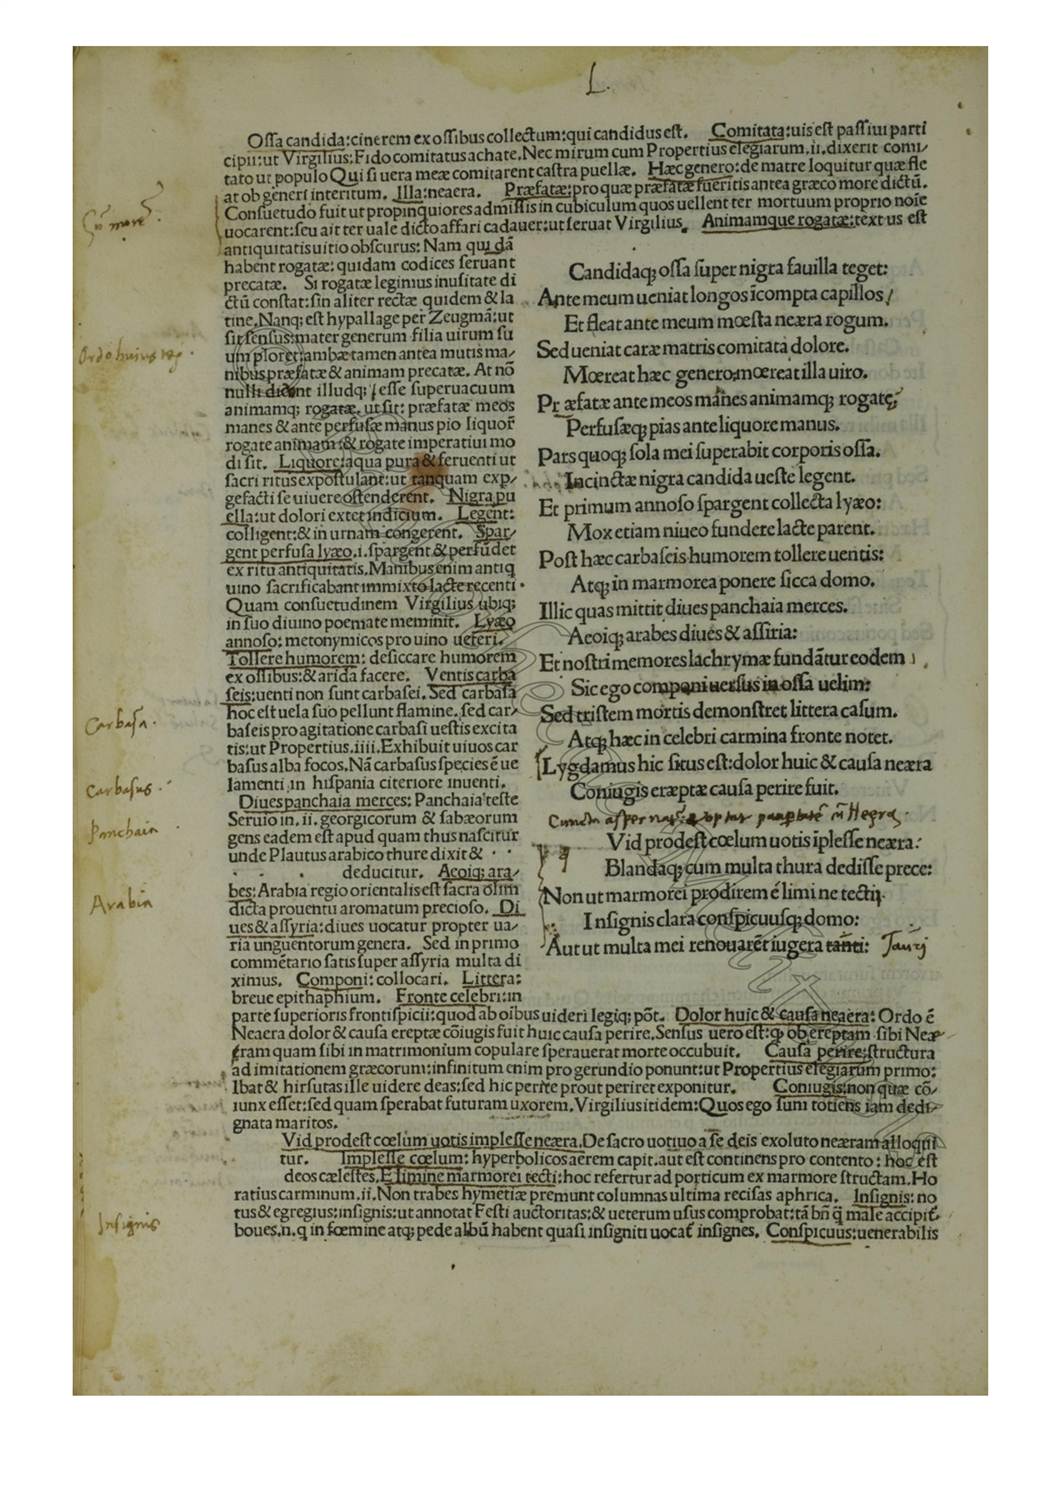 L.
Ossa candida:cinerem ex ossibus collectum:qui candidus est. Comitata:uis est passiui parti
cipii:ut Virgilius:Fido comitatus achate.Nec mirum cum Propertius elegiarum.ii.dixerit comi/
tato ut populo Qui si uera meæ comitarent castra puellæ. Hæc genero:de matre loquitur quæ fle
at ob generi interitum. Illa:neæra. Præfatæ:pro quæ præfatæ fueritis antea græco more dictũ.
Consuetudo fuit ut propinquiores admissis in cubiculum quos uellent ter mortuum proprio noīe
uocarent:seu ait ter uale dicto affari cadauer:ut seruat Virgilius. Animamque rogatæ:textus est
antiquitatis uitio obscurus: Nam quidā
habent rogatæ: quidam codices seruant
precatæ. Si rogatæ legimus inusitate di
ctũ constat:sin aliter rectæ quidem & la
tine.Nanq; est hypallage per Zeugmā:ut
sit sensus:mater generum filia uirum su
um ploret:ambæ tamen antea mutis ma/
nibus præfatæ & animam precatæ. At nō
nulli dicunt illudq; esse superuacuum
animamq; rogatæ. ut sit: præfatæ meos
manes & ante perfusæ manus pio liquor̄
rogate animam:& rogate imperatiui mo
di sit. Liquore:aqua pura & feruenti ut
sacri ritus expostulant:ut tanquam exp/
gefacti se uiuere ostenderent. Nigra pu
ella:ut dolori extet indicium. Legent:
colligent:& in urnam congerent. Spar/
gent perfusa lyæo.i.spargent & perfũdet
ex ritu antiquitatis.Manibus enim antiq
uino sacrificabant immixto lacte recenti
Quam consuetudinem Virgilius ubiq;
in suo diuino poemate meminit. Lyæo
annoso: metonymicos pro uino ueteri.
Tollere humorem: desiccare humorem
ex ossibus:& arida facere. Ventis carba
seis:uenti non sunt carbasei. Sed carbasa
hoc est uela suo pellunt flamine. sed car/
baseis pro agitatione carbasi uestis excita
tis:ut Propertius.iiii.Exhibuit uiuos car
basus alba focos.Nā carbasus species ē ue
lamenti in hispania citeriore inuenti.
Diues panchaia merces: Panchaia teste
Seruio in. ii. georgicorum & sabæorum
gens eadem est apud quam thus nascitur
unde Plautus arabico thure dixit &
deducitur. Aeoiq; ara/
bes:Arabia regio orientalis est sacra olim
dicta prouentu aromatum precioso. Di
ues & assyria:diues uocatur propter ua/
ria unguentorum genera. Sed in primo
commētario satis super assyria multa di
ximus. Componi: collocari. Littera:
breue epithaphium. Fronte celebri:in
Candidaq; ossa super nigra fauilla teget:
Ante meum ueniat longos īcompta capillos/
Et fleat ante meum mœsta neæra rogum.
Sed ueniat caræ matris comitata dolore.
Mœreat hæc genero:mœreat illa uiro.
Præfatæ ante meos manes animamq; rogatę
Perfusæq; pias ante liquore manus.
Pars quoq; sola mei superabit corporis ossa.
Incinctæ nigra candida ueste legent.
Et primum annoso spargent collecta lyæo:
Mox etiam niueo fundere lacte parent.
Post hæc carbaseis humorem tollere uentis:
Atq; in marmorea ponere sicca domo.
Illic quas mittit diues panchaia merces.
Aeoiq; arabes diues & assiria:
Et nostri memores lachrymæ fundātur eodem
Sic ego componi uersus in ossa uelim:
Sed tristem mortis demonstret littera casum.
Atq; hæc in celebri carmina fronte notet.
Lygdamus hic situs est:dolor huic & causa neæra
Coniugis eræptæ causa perire fuit.
Vid prodest cœlum uotis īplesse neæra:
Blandaq; cum multa thura dedisse prece:
Non ut marmorei prodirem ē limine tecti
Insignis clara conspicuusq; domo:
Aut ut multa mei renouarēt iugera tanti: Tauri
parte superioris frontispicii:quod ab oibus uideri legiq; pōt. Dolor huic & causa neæra: Ordo ē
Neæra dolor & causa ereptæ cōiugis fuit huic causa perire.Sensus uero est:q ob ereptam sibi Neæ
ram quam sibi in matrimonium copulare sperauerat morte occubuit. Causa perire:structura
ad imitationem græcorum:infinitum enim pro gerundio ponunt:ut Propertius elegiarum primo:
Ibat & hirsutas ille uidere deas:sed hic perire prout periret exponitur. Coniugis:non quæ cō/
iunx esset:sed quam sperabat futuram uxorem.Virgilius itidem:Quos ego sum totiens iam dedi/
gnata maritos.
Vid prodest cœlum uotis implesse neæra.De sacro uotiuo a se deis exoluto neæram alloquit
tur. Implesse cœlum: hyperbolicos aerem capit.aut est continens pro contento: hoc est
deos cælestes.E limine marmorei tecti:hoc refertur ad porticum ex marmore structam.Ho
ratius carminum.ii.Non trabes hymetiæ premunt columnas ultima recisas aphrica. Insignis: no
tus & egregius:insignis:ut annotat Festi auctoritas:& ueterum usus comprobat:tā bñ q̄ male accipit
boues.n.q in fœmine atq; pede albũ habent quasi insigniti uocat insignes. Conspicuus:uenerabilis
Ordo huius
Carbasa.
Carbasus.
Panchaia
Arabia
Insignis